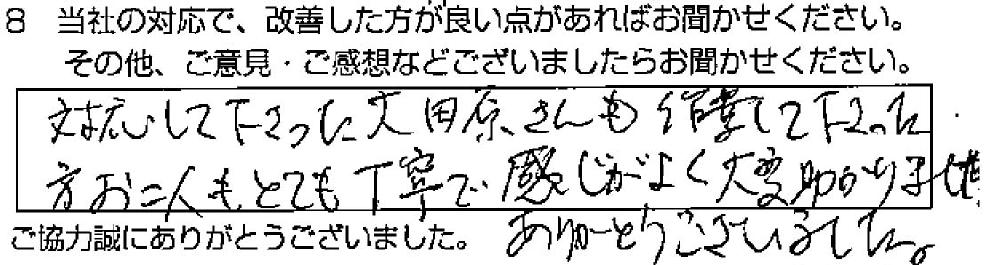 8 当社の対応で、改善した方が良い点があればお聞かせください。
その他、ご意見・ご感想などございましたらお聞かせください。
対応して下さった大田原さんも作業して下さった
方お二人もとても丁寧で感じがよく大変助かりました
ご協力誠にありがとうございました。 ありがとうございました。